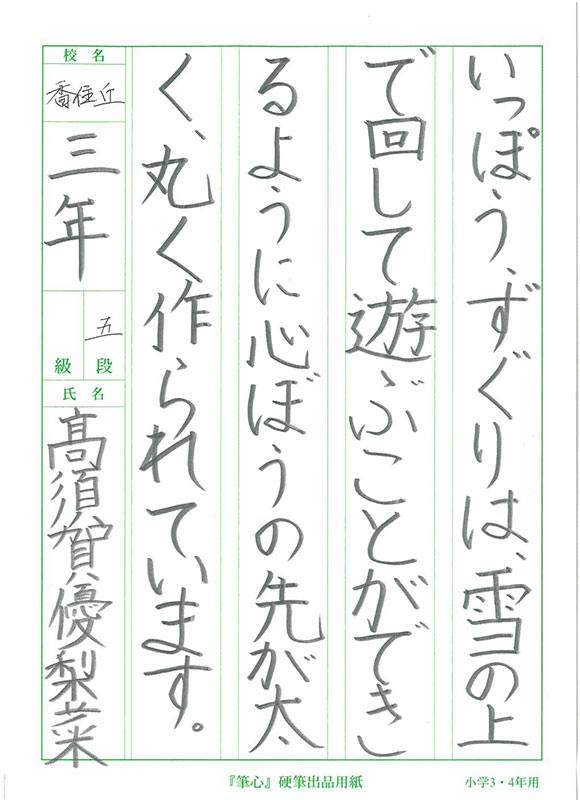 いっぽう、ずぐりは、雪の上
で回して遊ぶことができ
るように心ぼうの先が太
く、丸く作られています。
校名
香住丘
三年
五段
級
氏名
髙須賀優梨菜
『筆心』硬筆出品用紙
小学3・4年用